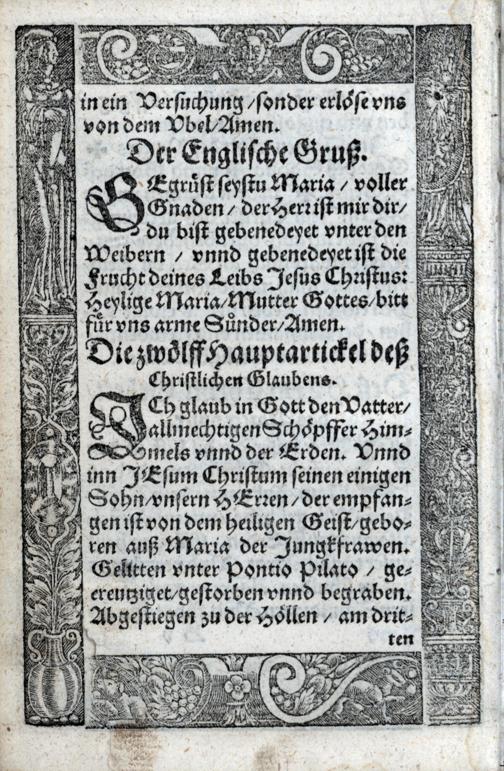 in ein Versuchung / sonder erlöse vns
von dem Vbel / Amen.
Der Englische Gruß.
BEgrüst seystu Maria / voller
Gnaden / der Herr ist mir dir /
du bist gebenedeyet vnter den
Weibern / vnnd gebenedeyet ist die
Frucht deines Leibs Jesus Christus:
Heylige Maria / Mutter Gottes / bitt
für vns arme Sünder / Amen.
Die zwölff Hauptartickel deß
Christlichen Glaubens.
ICh glaub in Gott den Vatter /
allmechtigen Schöpffer Him-
mels vnnd der Erden. Vnnd
inn JEsum Christum seinen einigen
Sohn / vnsern HErren / der empfan-
gen ist von dem heiligen Geist / gebo-
ren auß Maria der Jungkfrawen.
Gelitten vnter Pontio Pilato / ge-
creutziget / gestorben vnnd begraben.
Abgestiegen zu der Höllen / am drit-
ten